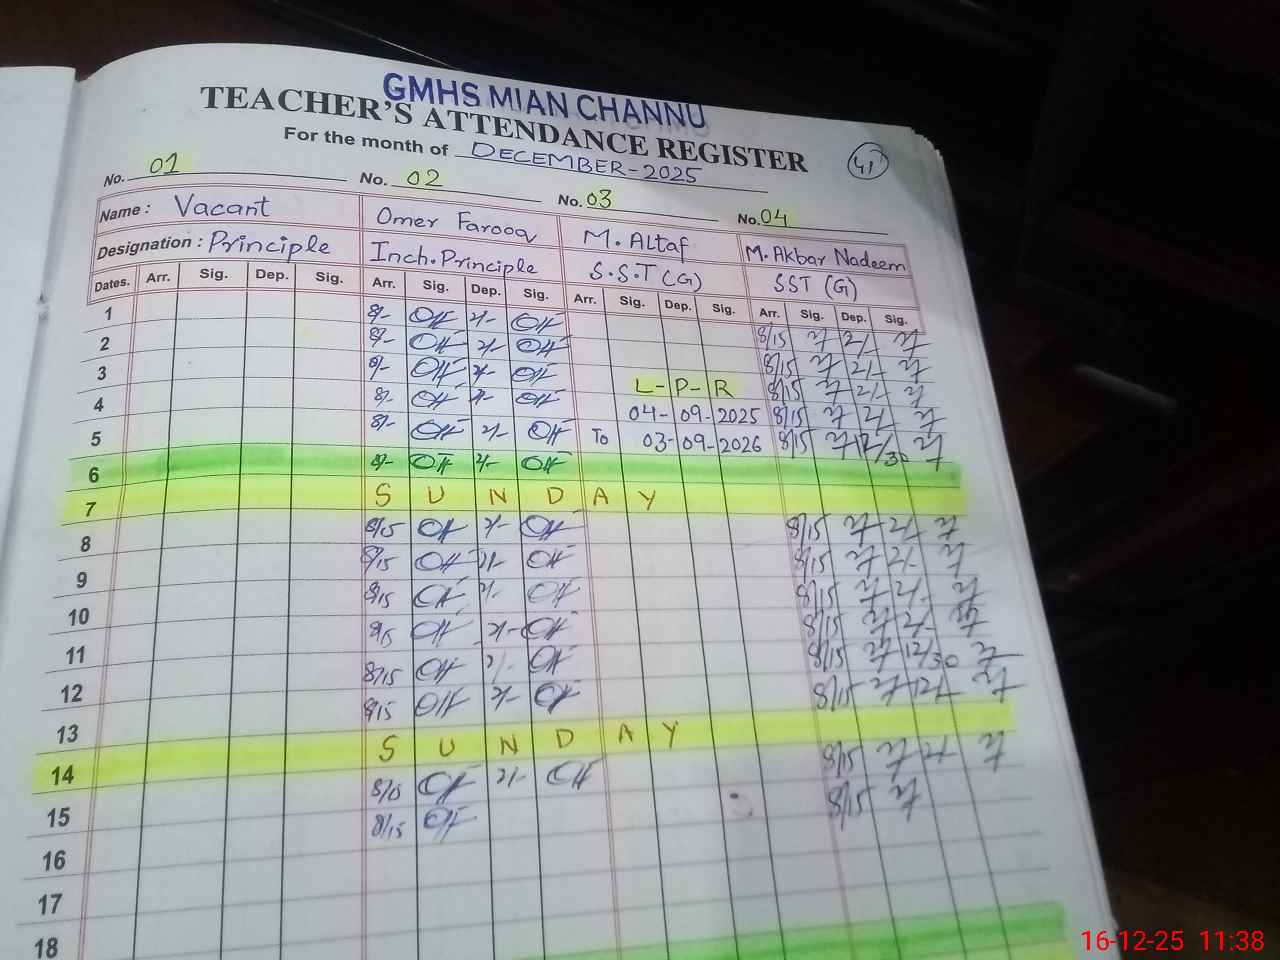 GMHS MIAN CHANNU
TEACHER'S ATTENDANCE REGISTER
For the month of DECEMBER-2025
41
No. 01 No. 02 No. 03 No. 04
Name: Vacant Omer Farooq M. Altaf M. Akbar Nadeem
Designation: Principle Inch. Principle S.S.T (G) SST (G)
Dates. Arr. Sig. Dep. Sig. Arr. Sig. Dep. Sig. Arr. Sig. Dep. Sig. Arr. Sig. Dep. Sig.
1 8/- 2/- 8/15 2/-
2 8/- 2/- 8/15 2/-
3 8/- 2/- L-P-R 8/15 2/-
4 8/- 2/- 04-09-2025 8/15 2/-
5 8/- 2/- To 03-09-2026 8/15 12/30
6 8/- 2/-
7 S U N D A Y
8 8/15 2/- 8/15 2/-
9 8/15 2/- 8/15 2/-
10 8/15 2/- 8/15 2/-
11 8/15 2/- 8/15 2/-
12 8/15 2/- 8/15 12/30
13 8/15 2/- 8/15
14 S U N D A Y
15 8/15 2/- 8/15 2/-
16 8/15 8/15
17
18
16-12-25 11:38